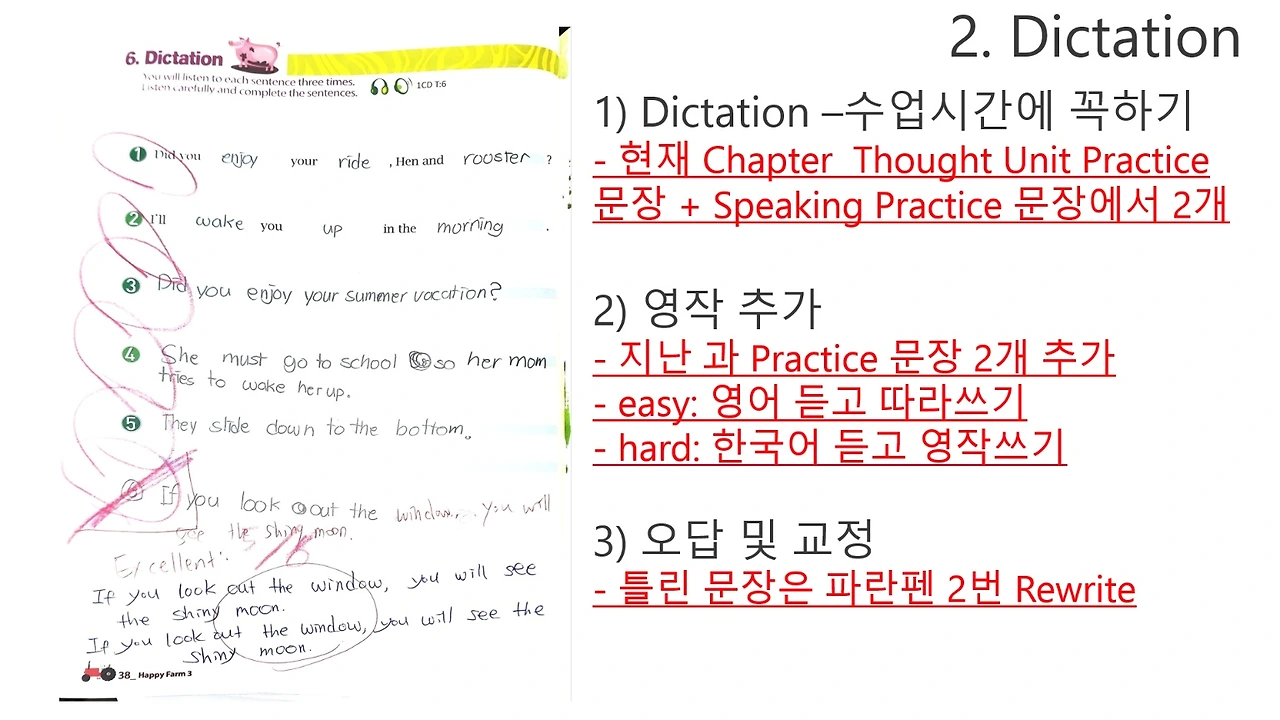 2. Dictation
6. Dictation
You will listen to each sentence three times.
Listen carefully and complete the sentences.
1CD T:6
1 Did you enjoy your ride , Hen and rooster ?
2 I'll wake you up in the morning .
3 Did you enjoy your summer vacation?
4 She must go to school so her mom
tries to wake her up.
5 They slide down to the bottom.
6 If you look out the window, you will
see the shiny moon.
Excellent! 5/6
If you look out the window, you will see
the shiny moon.
If you look out the window, you will see the
shiny moon.
38_ Happy Farm 3
1) Dictation –수업시간에 꼭하기
- 현재 Chapter Thought Unit Practice
문장 + Speaking Practice 문장에서 2개
2) 영작 추가
- 지난 과 Practice 문장 2개 추가
- easy: 영어 듣고 따라쓰기
- hard: 한국어 듣고 영작쓰기
3) 오답 및 교정
- 틀린 문장은 파란펜 2번 Rewrite